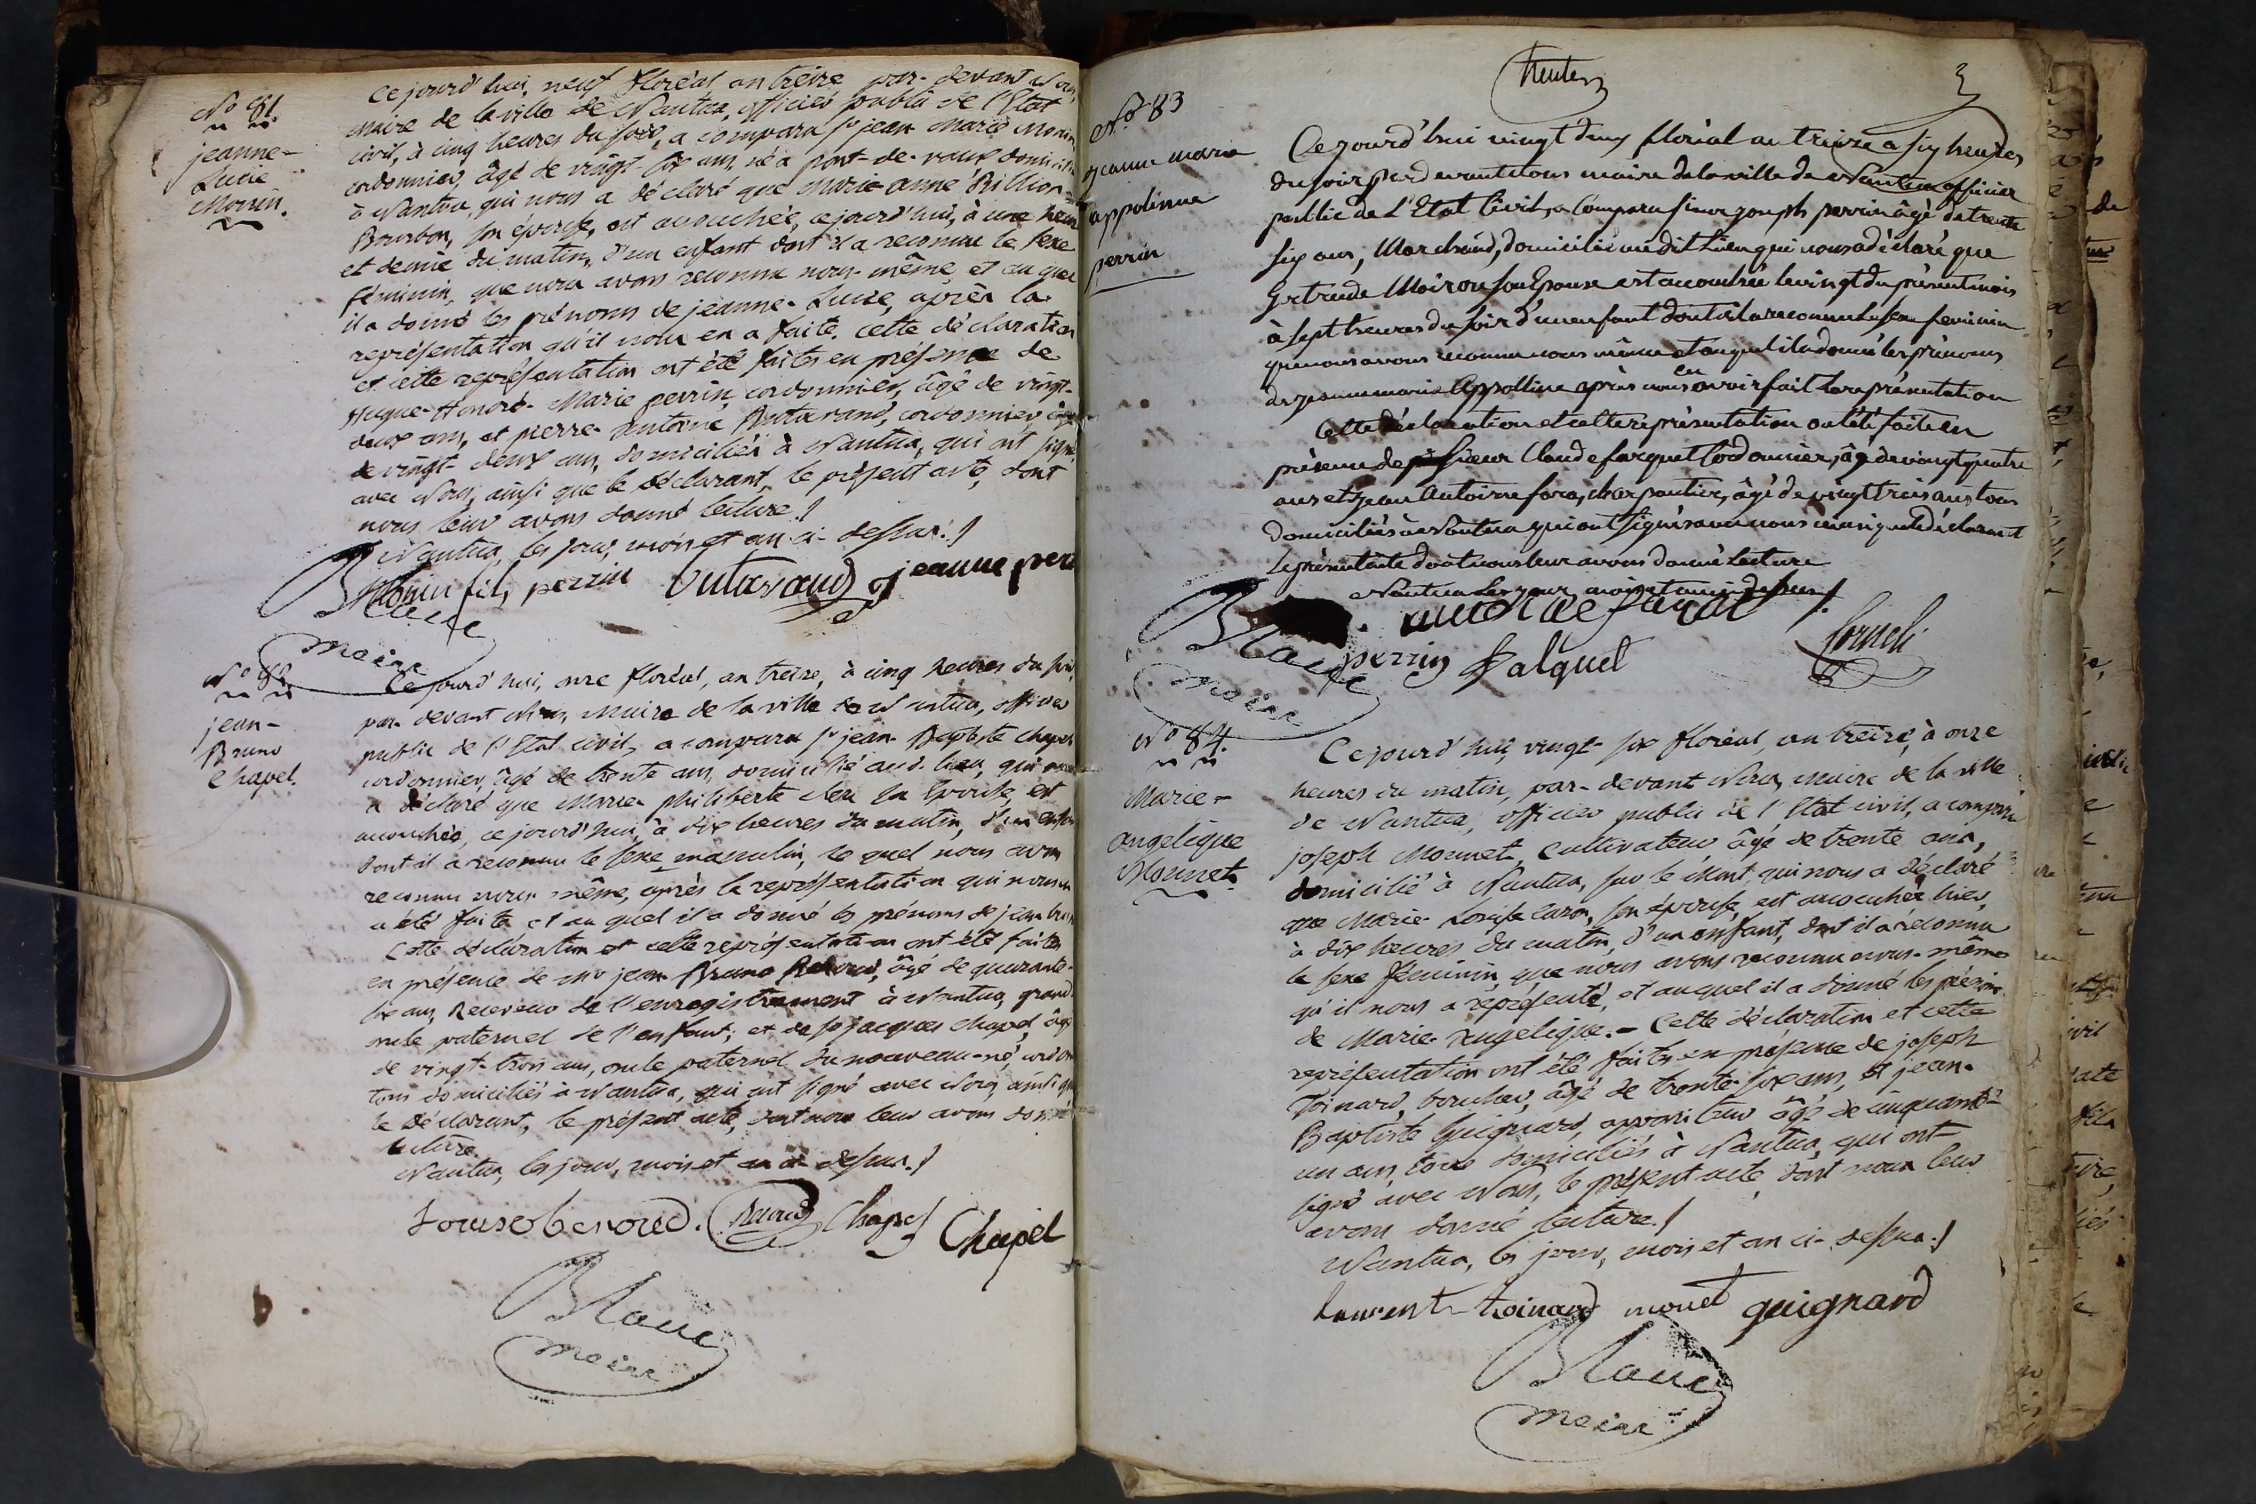 No 81.
jeanne-
Lucie
Morin.
Ce jourd'hui, neuf floréal an treize par-devant Nous,
maire de la ville de Nantua, officier public de l'Etat
civil, à cinq heures du soir, a comparu sr jean Marie Morin
cordonnier, âgé de vingt-six ans, né à pont-de-vaux domicilié
à Nantua, qui nous a déclaré que Marie anne Billion-
Bourbon, son épouse, est accouchée, ce jourd'hui, à une heure
et demie du matin, d'un enfant dont il a reconnu le sexe
féminin, que nous avons reconnu nous-même et au quel
il a donné les prénoms de jeanne-Lucie, après la
représentation qu'il nous en a faite. cette déclaration
et cette représentation ont été faites en présence de
Marie perrin, cordonnier, âgé de vingt-
deux ans, et pierre-antoine Butavand, cordonnier, âgé
de vingt-deux ans, domiciliés à Nantua, qui ont signé
avec Nous, ainsi que le déclarant, le présent acte, dont
nous leur avons donné lecture./
Nantua, les jour, mois et an ci-dessus./
Morin fils perrin butavand jeanne
maire
No 82
jean-
Bruno
Chapel.
Ce jourd'hui, onze floréal, an treize, à cinq heures du soir,
par-devant Nous, Maire de la ville de Nantua, officier
public de l'Etat civil, a comparu sr jean-Baptiste chapel
cordonnier, âgé de trente ans, domicilié aud. lieu, qui nous
a déclaré que Marie philiberte son épouse, est
accouchée, ce jourd'hui, à dix heures du matin, d'un enfant
dont il a reconnu le sexe masculin, le quel nous avons
reconnu nous-même, après la représentation qui nous en
a été faite et au quel il a donné les prénoms de jean bruno
Cette déclaration et cette représentation ont été faites
en présence de mr jean Bruno âgé de quarante-
six ans, Receveur de l'enregistrement à Nantua, grand
oncle paternel de l'enfant; et de sr jacques chapel, âgé
de vingt-trois ans, oncle paternel du nouveau-né,
tous domiciliés à Nantua, qui ont signé avec Nous, ainsi que
le déclarant, le présent acte, dont nous leur avons donné
lecture.
Nantua, les jour, mois et an ci-dessus./
Chapel Chapel
maire
trente
No 83
jeanne marie
appolinne
perrin
Ce jourd'hui vingt deux floréal an treize a six heures
du soir par devant nous maire de la ville de Nantua officier
public de L'Etat Civil, a Comparu sieur joseph perrin âgé de trente
six ans, Marchand, domicilié au dit Lieu qui nous a déclaré que
Gertrude Moirou son Epouse est accouchée le vingt du présent mois
à sept heures du soir d'un enfant dont il a reconnu le sexe feminin
que nous avons reconnu nous même et auquel il a donné les prénoms
de jeanne marie Appolline après nous en avoir fait la représentation
Cette déclaration et cette représentation ont été faite en
présence de sieur Claude farguet Cordonnier, âgé de vingt quatre
ans et jean Antoine charpentier, âgé de vingt trois ans tous
domiciliés à Nantua qui ont signés avec nous ainsi que le déclarant
le présent acte dont nous leur avons donné Lecture
Nantua Les jour, mois et an ci dessus/.
perrin falquet
maire
No 84.
Marie-
angelique
Monnet.
Ce jourd'hui, vingt-six floréal, an treize, à onze
heures du matin, par-devant Nous, maire de la ville
de Nantua, officier public de l'Etat civil, a comparu
joseph Monnet, Cultivateur âgé de trente ans,
domicilié à Nantua, sur le Mont qui nous a déclaré
que Marie-Louise caron, son épouse, est accouchée hier,
à dix heures du matin, d'un enfant, dont il a reconnu
le sexe féminin, que nous avons reconnu nous-même
qu'il nous a représenté, et auquel il a donné les prénoms
de Marie-angelique.- Cette déclaration et cette
représentation ont été faites en présence de joseph
Toinard, boucher, âgé de trente-six ans, et jean-
Baptiste Guignard, appariteur âgé de cinquante-
un ans, tous domiciliés à Nantua, qui ont
signé avec Nous, le présent acte, dont nous leur
avons donné lecture./
Nantua, les jour, mois et an ci-dessus./
Laurent toinard monet guignard
maire